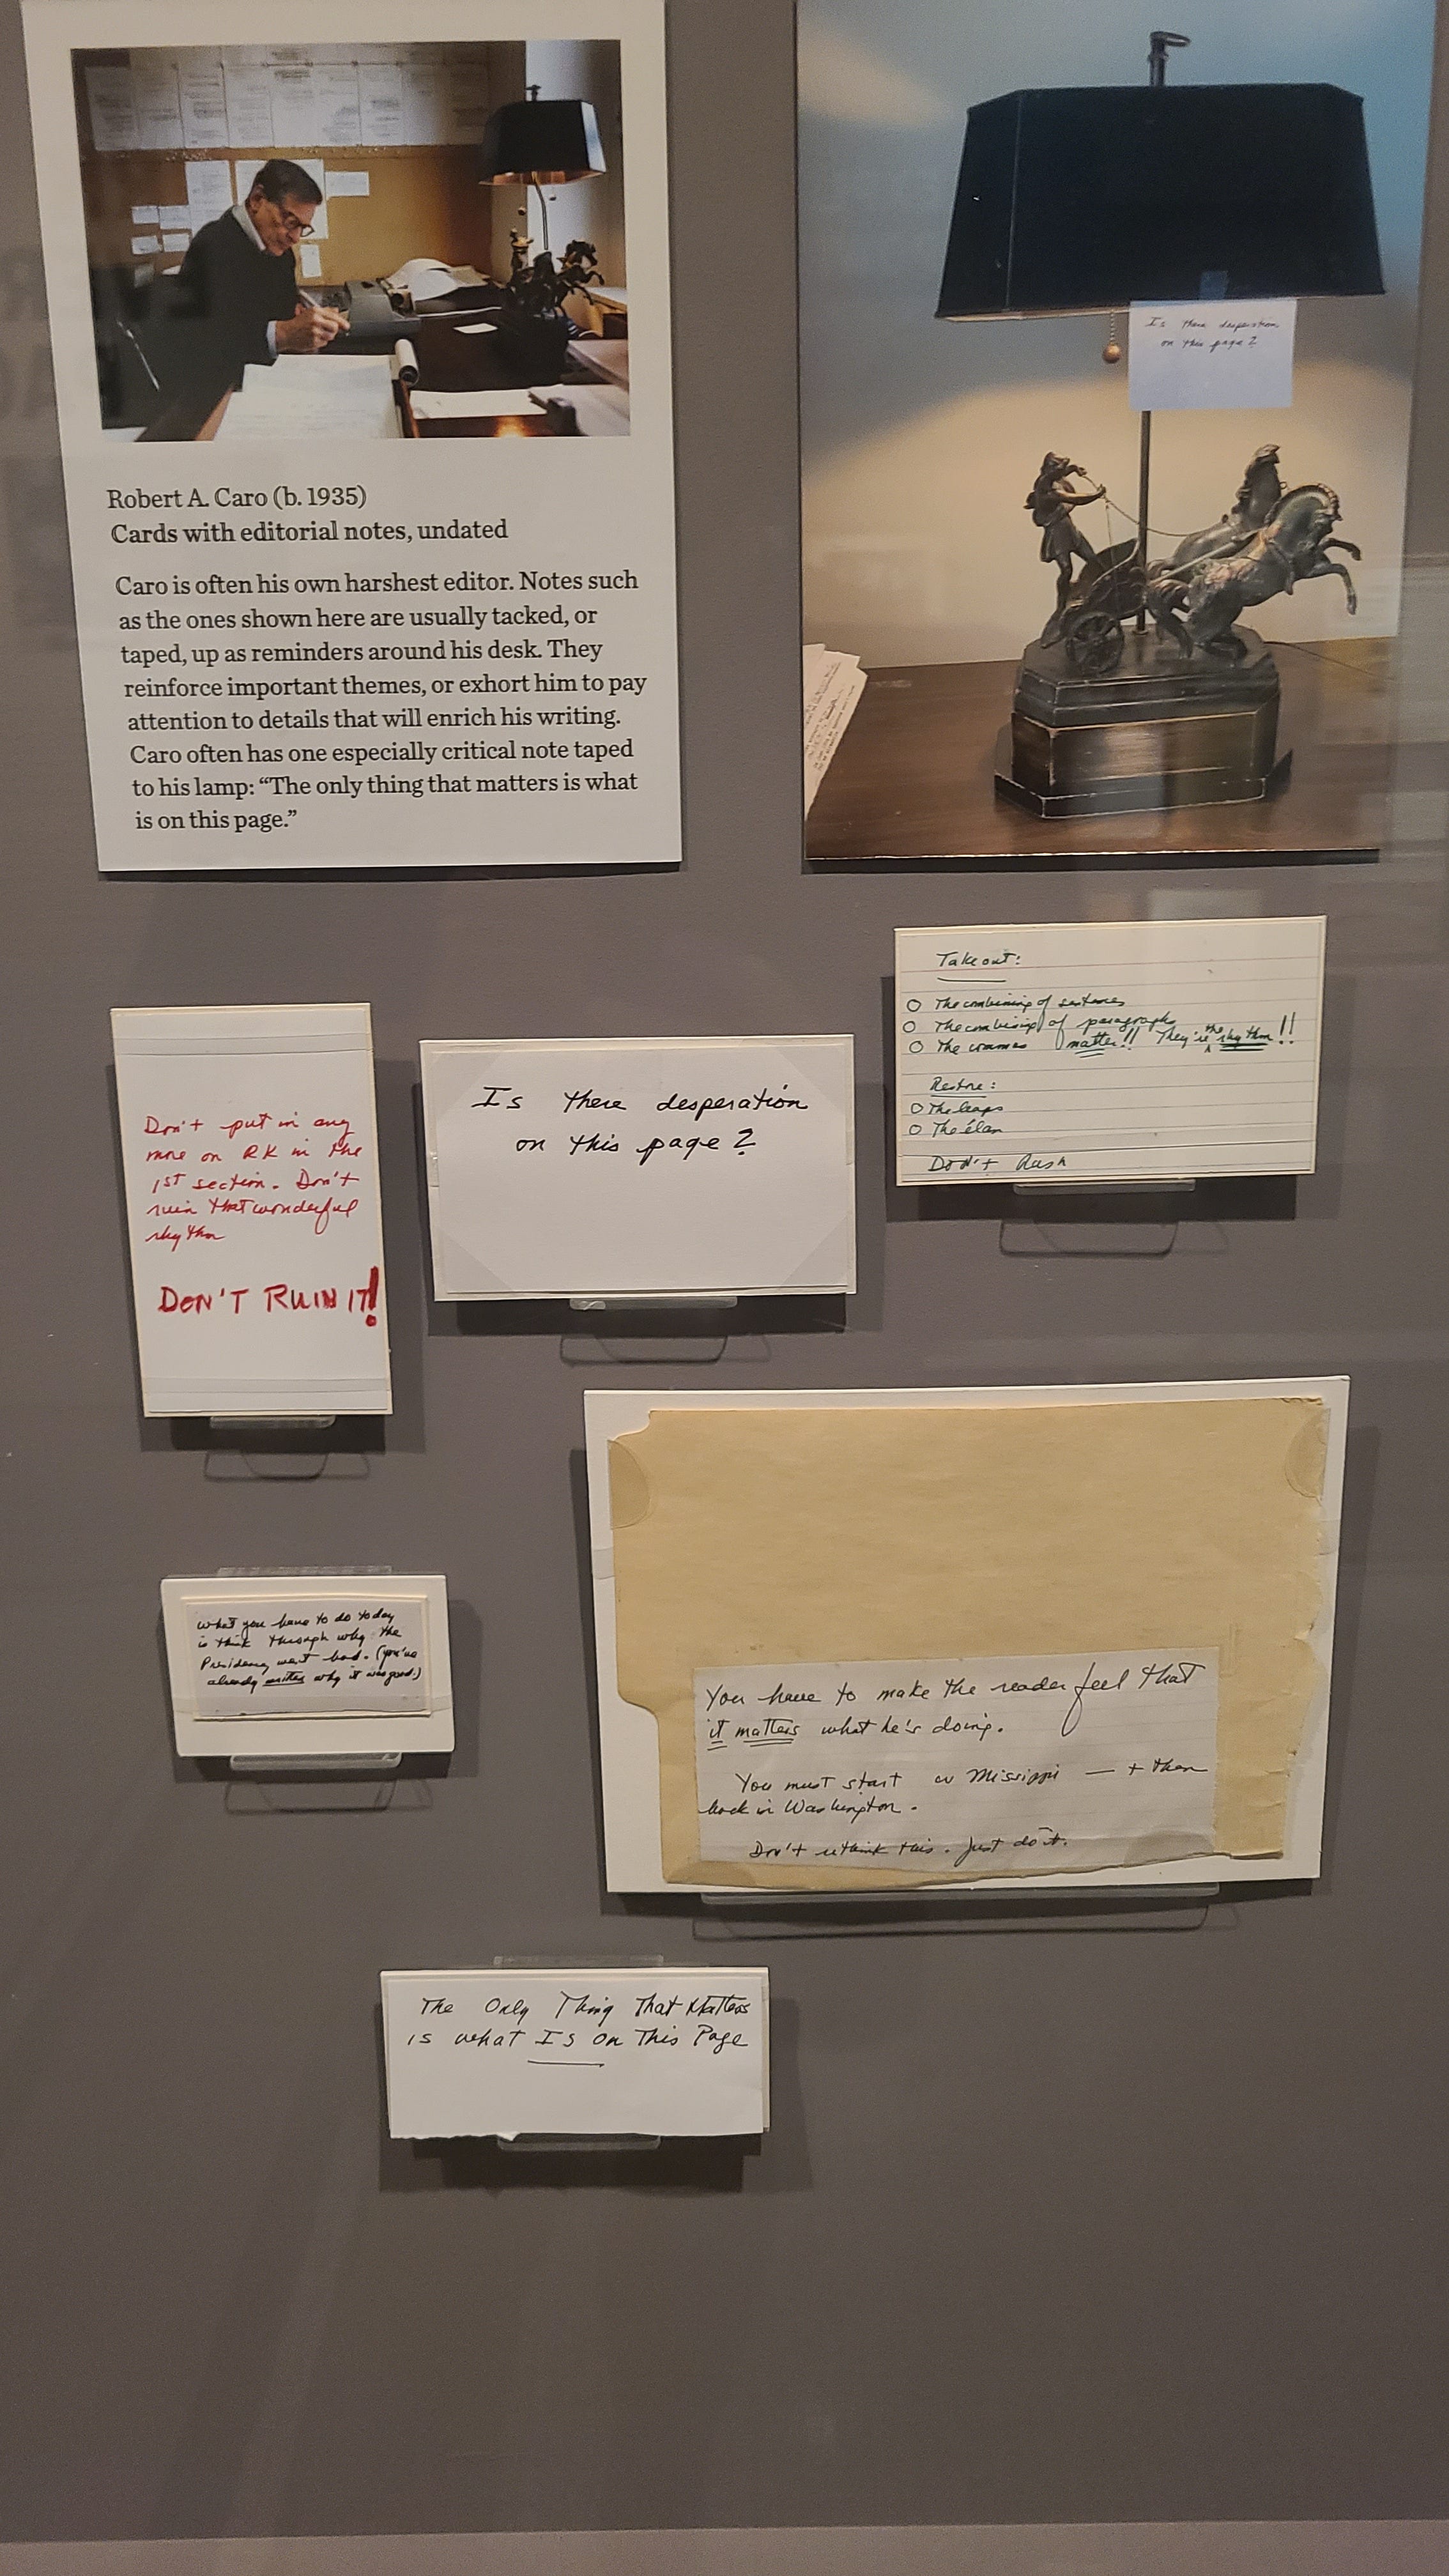 Robert A. Caro (b. 1935)
Cards with editorial notes, undated
Caro is often his own harshest editor. Notes such
as the ones shown here are usually tacked, or
taped, up as reminders around his desk. They
reinforce important themes, or exhort him to pay
attention to details that will enrich his writing.
Caro often has one especially critical note taped
to his lamp: “The only thing that matters is what
is on this page.”
Is there desperation
on this page?
Take out:
The combining of sentences
The combining of paragraphs
The commas matter!! They're the rhythm!!
Restore:
The leaps
The élan
Don't Rush
Don't put in any
more on RK in the
1st section. Don't
ruin that wonderful
rhythm
DON'T RUIN IT!
Is there desperation
on this page?
What you have to do today
is think through why the
Presidency went bad. (you've
already written why it was good.)
You have to make the reader feel that
it matters what he's doing.
You must start in Missippi — + then
back in Washington.
Don't rethink this. Just do it.
The Only Thing That Matters
is what Is On This Page